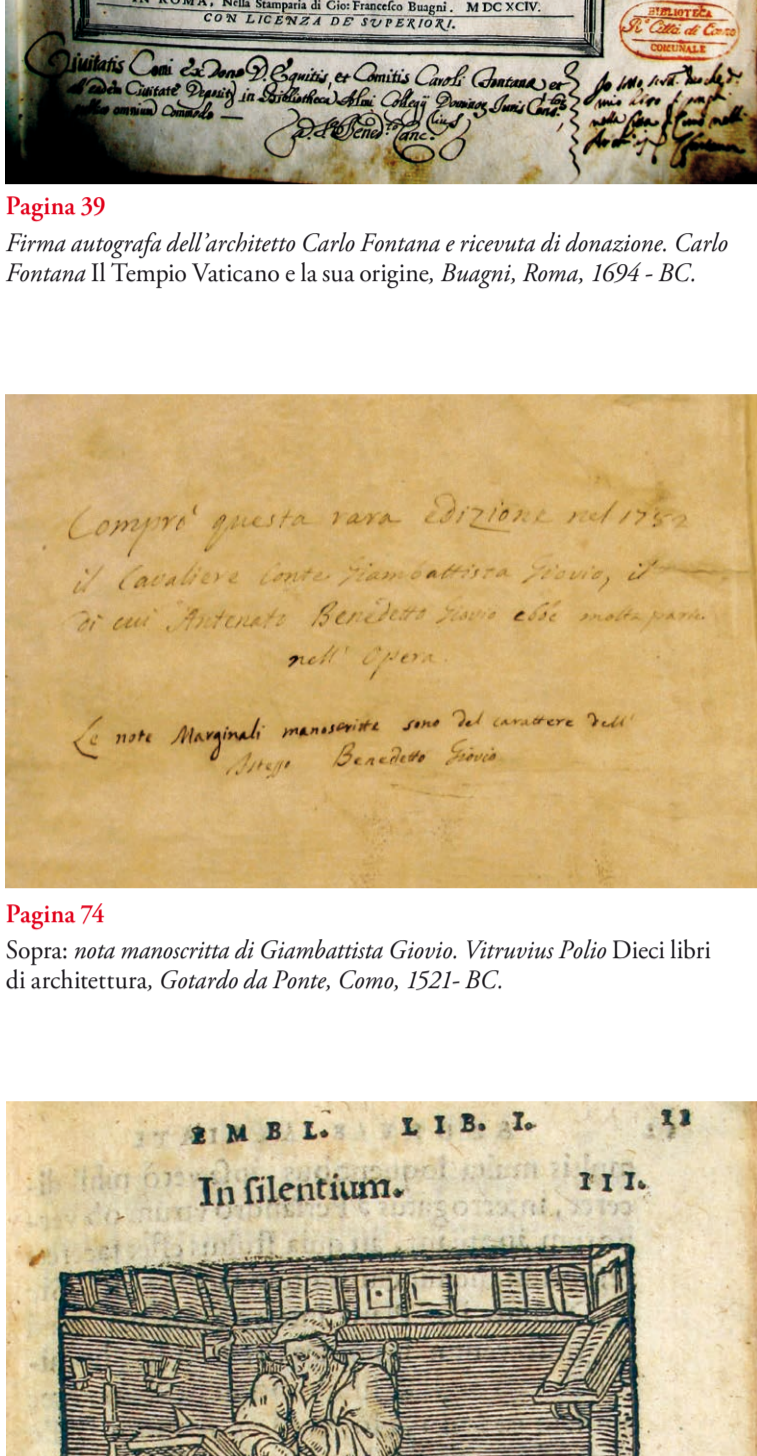 IN ROMA, Nella Stamparia di Gio: Francesco Buagni. M DC XCIV.
CON LICENZA DE' SVPERIORI.
BIBLIOTECA
Rª Città di Como
COMUNALE
Ciuitatis Comi Ex Dono D. Equitis, et Comitis Caroli Fontana et
in Bibliotheca Almi Collegij
omnium Commodo
Pagina 39
Firma autografa dell'architetto Carlo Fontana e ricevuta di donazione. Carlo
Fontana Il Tempio Vaticano e la sua origine, Buagni, Roma, 1694 - BC.
Comprò questa rara Edizione nel 1752
il Cavaliere Conte Giambattista Giovio, il
di cui Antenato Benedetto Giovio ebbe molta parte
nell' Opera.
Le note Marginali manoscritte sono del carattere dell'
istesso Benedetto Giovio
Pagina 74
Sopra: nota manoscritta di Giambattista Giovio. Vitruvius Polio Dieci libri
di architettura, Gotardo da Ponte, Como, 1521- BC.
EMBL. LIB. I. 11
In silentium. III.